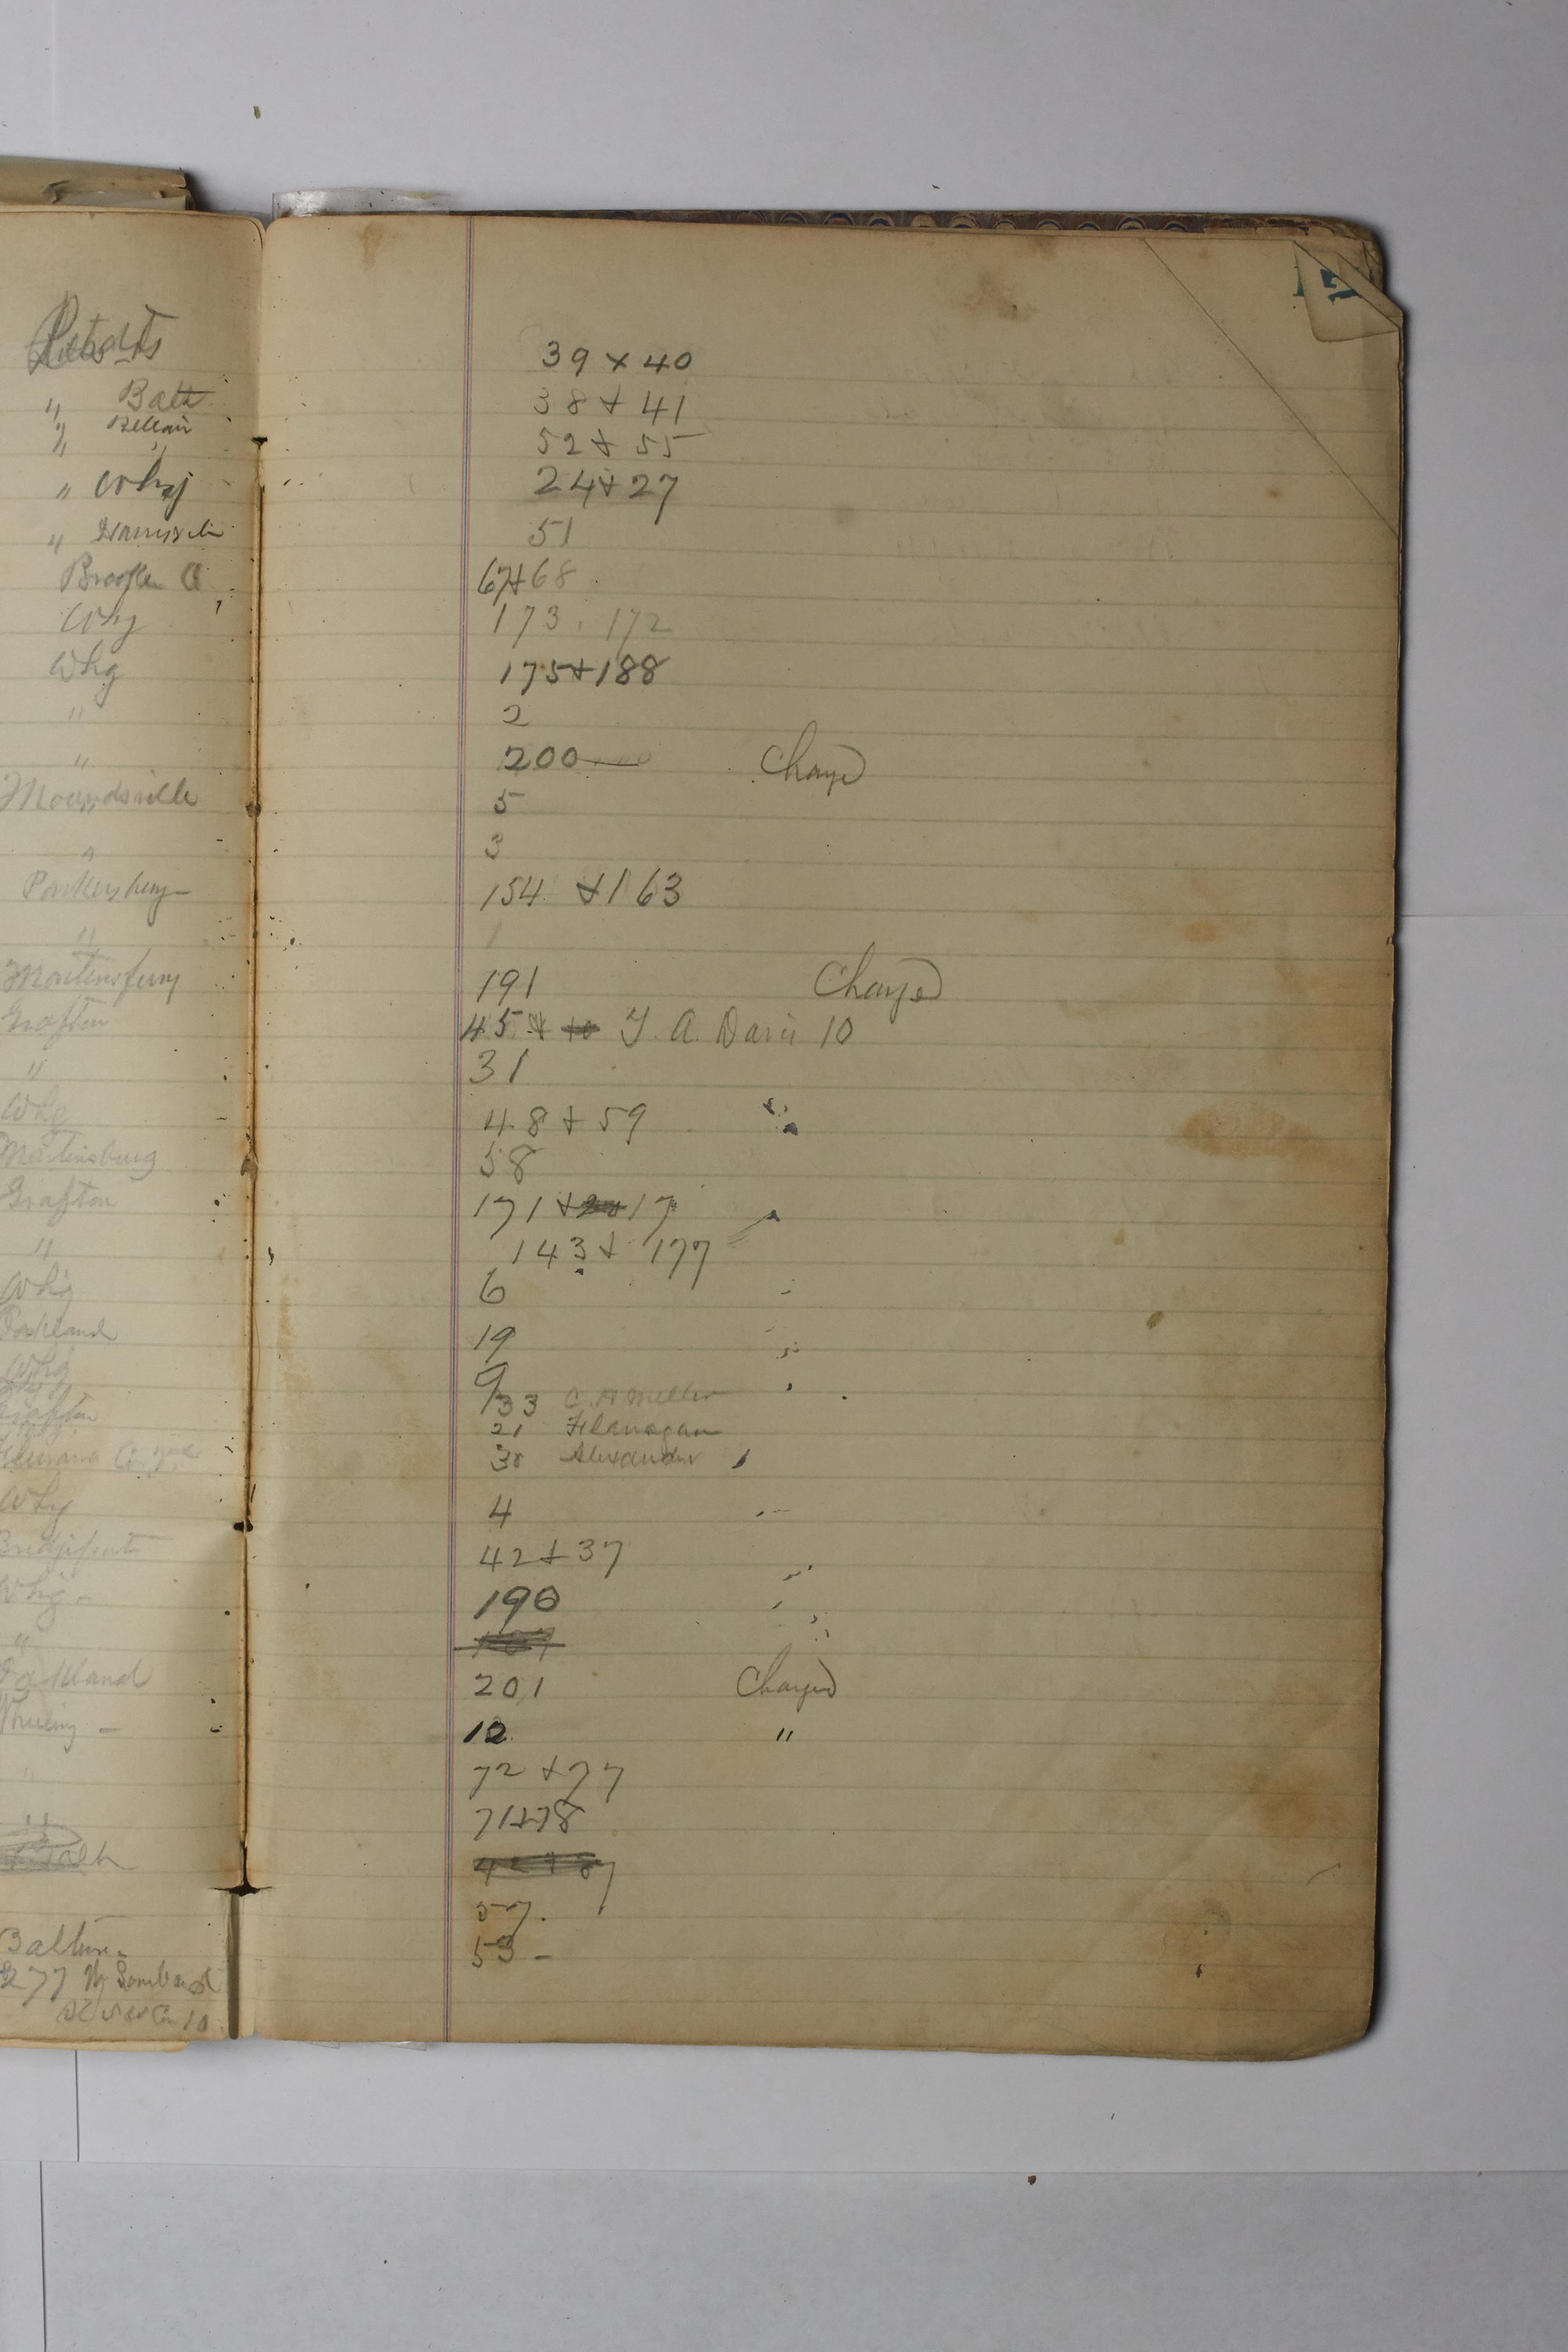 " Balt
" Bellair
" Whg
"
Whg
Whg
"
"
Moundsville
"
Parkersburg
"
Martinsferry
Grafton
"
Whg
Martinsburg
Grafton
"
Whg
Oakland
Whg
Grafton
Whg
Bridgeport
Whg -
"
Oakland
"
Balt
277 W Lombard
10
39 x 40
38 + 41
52 + 55
24 + 27
51
67+68
173 . 172
175+188
2
200 Charged
5
3
154 + 163
1
191 Charged
45 + 10 Y. A. Davis 10
31
48 + 59
58
171 + 17
143 + 177
6
19
9
33 C. H Miller
21 Flanagan
38 Alexander
4
42 + 37
190
201 Charged
12 "
72 + 77
71+78
57.
53 -